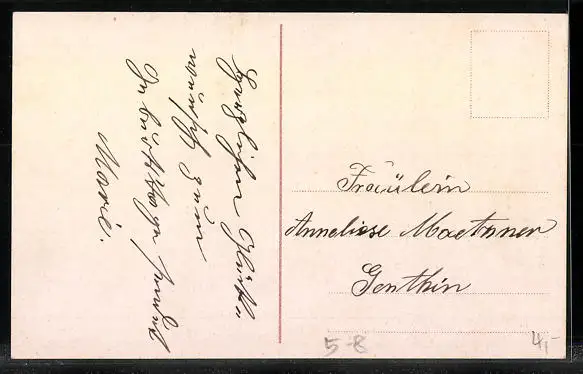 Herzlichen Glück-
wunsch zum
Geburtstage sendet
Marie.
Fräulein
Anneliese
Genthin
5-8
4,-